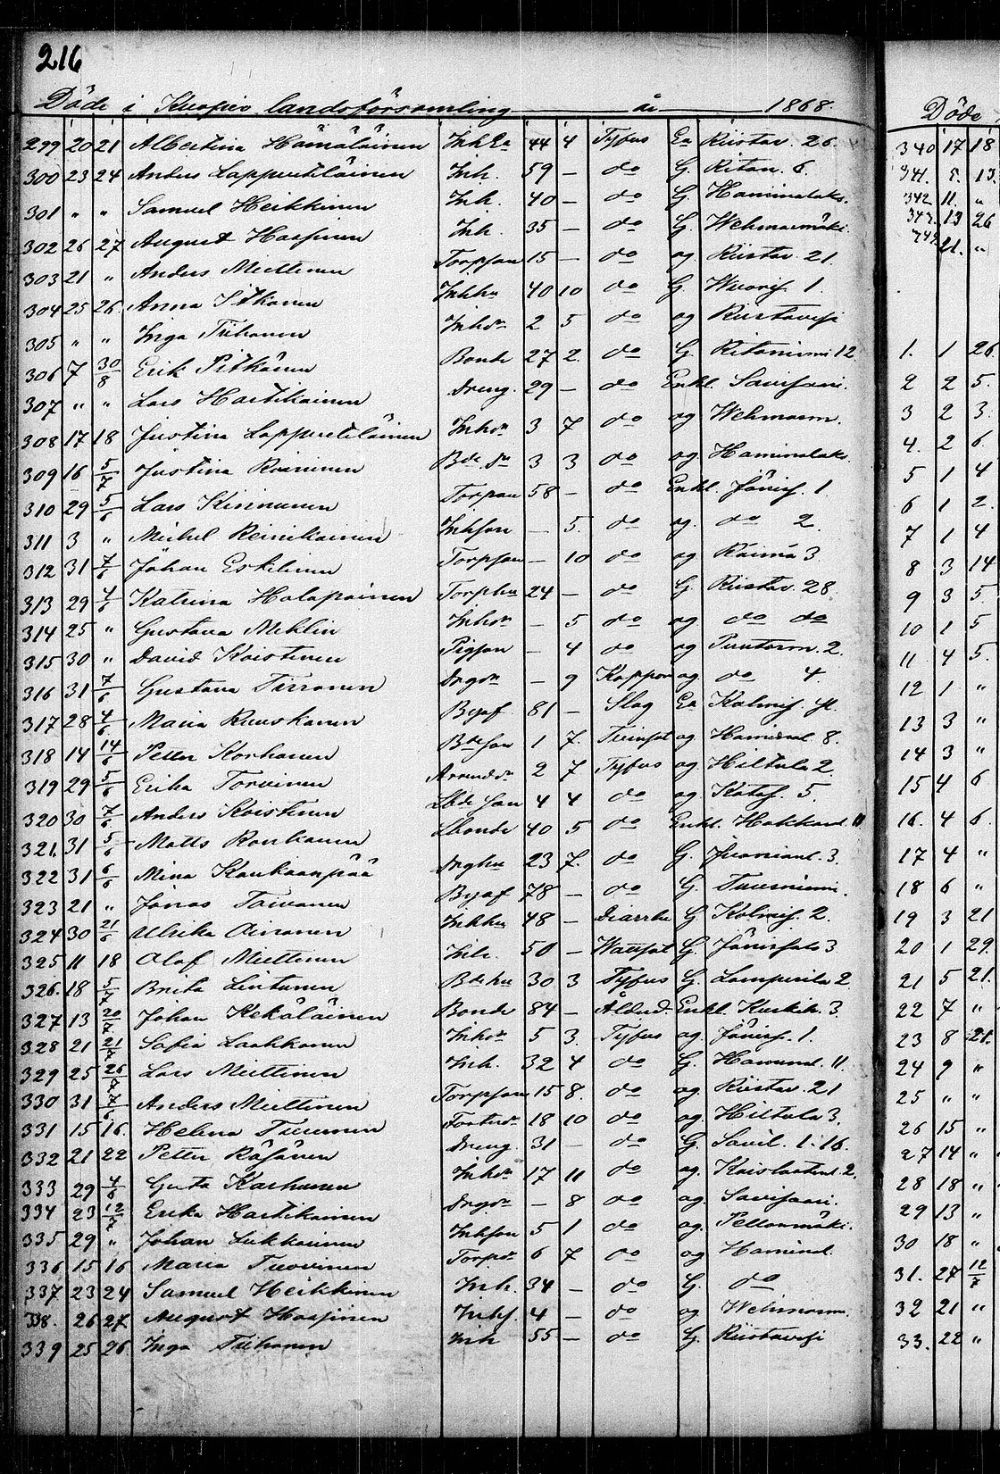 216
Döde i Kuopio landsförsamling år 1868.
299 20 21 Albertina Hämäläinen Inh Ea 44 4 Tyfus Ea Riistav. 26.
300 23 24 Anders Lappeteläinen Inh. 59 – do G. Riton. 6.
301 " " Samuel Heikkinen Inh. 40 – do G. Haminalaks.
302 26 27 August Hassinen Inh. 35 – do G. Wehmasmäki
303 21 " Anders Miettinen Torpson 15 – do og Riistav. 21.
304 25 26 Anna Pitkänen Inhhu 40 10 do G. 1.
305 " " Inga Tiihonen Inhdr 2 5 do og Riistavesi
306 7 30/8 Erik Pitkänen Bonde 27 2. do G. Ritoniemi 12
307 " " Lars Hartikainen Dreng. 29 – do Enkl. Savisaari.
308 17 18 Justina Lappeteläinen Inhdr 3 7 do og Wehmasm.
309 16 5/7 Justina Bde dr 3 3 do og Haminalaks.
310 29 5/6 Lars Kinnunen Torpar 58 – do Enkl. Jänis. 1.
311 3 " Michel Reinikainen Inhson – 5. do og. do 2.
312 31 7/6 Johan Eskelinen Torpson – 10 do og Räimä 3
313 29 4/6 Katrina Holopainen Torphu 24 – do G. Riistav. 28.
314 25 " Gustava Mehlin Inhdr – 5 do og do do
315 30 " David Koistinen Pigson – 4 do og 2.
316 31 7/6 Gustava Tirronen Drgdr – 9 Koppor og do 4.
317 28 4/6 Maria Ruuskanen Bysf 81 – Slag Ea Kolmis.
318 14 14/6 Petter Korhonen Bdeson 1 7. og Haminal 8.
319 29 5/6 Erika Torvinen 2 7 Tyfus og Hiltula 2.
320 30 7/6 Anders Koistinen Lbde son 4 4 do og Kotas. 5.
321. 31 5/6 Matts Ronkainen Lbonde 40 5 do Enkl. 11
322 31 6/6 Mina Kauhaanpää Drghu 23 7. do G. 3.
323 21 " Jonas Toivanen Bysf 78 – do G. Tuusniemi.
324 30 21/6 Ulrika Airanen Inhhu 48 – Diarrhe G Kolmis. 2.
325 11 18 Olof Miettinen Inh. 50 – Wattsot G. Jänissalo 3
326. 18 5/7 Brita Lintunen Bdehu 30 3 Tyfus G. Lamperila 2
327 13 20/7 Johan Kekäläinen Bonde 84 – Ålderd. Enkl. 3.
328 21 21/7 Sofia Laakkonen Inhdr 5 3. Tyfus og. Jänis. 1.
329 25 26/7 Lars Miettinen Inh. 32 4 do G. Haminal. 11.
330 31 7/6 Anders Miettinen Torpson 15 8. do og Riistav. 21
331 15 16. Helena Turunen 18 10 do og. Hiltula 3.
332 21 22 Petter Räsänen Dreng. 31 – do G. Savil. 1. 16.
333 29 4/8 Greta Karhunen Inhdr 17 11 do og. 2.
334 23 12/7 Erika Hartikainen Drgdr – 8 do og Savisaari.
335 29 " Johan Liikkanen Inhson 5 1 do og. Pellosmäki.
336 15 16 Maria Tuovinen Torpdr 6 7 do og Haminal
337 23 24 Samuel Heikkinen Inh. 34 – do G. do
338. 26 27 August Hassinen Inhs. 4 – do og Wehmasm.
339 25 26 Inga Tiihonen Inh 55 – do G. Riistavesi
Döde
340 17 18
341. 5. 13.
342 11. "
343. 13 26
21. "
1. 1 26.
2 2 5.
3 2 3.
4. 2 6.
5 1 4
6 1 2.
7 1 4
8 3 14
9 3 5
10 1 5
11. 4 5.
12 1 "
13 3 "
14 3 "
15 4 6
16. 4 6.
17 4 "
18 6 "
19 3 21
20 1 29.
21 5 21.
22 7 "
23 8 21.
24 9 "
25 " "
26 15 "
27 14 "
28 18 "
29 13 "
30 18 "
31. 27 12/7
32 21 "
33. 22 "